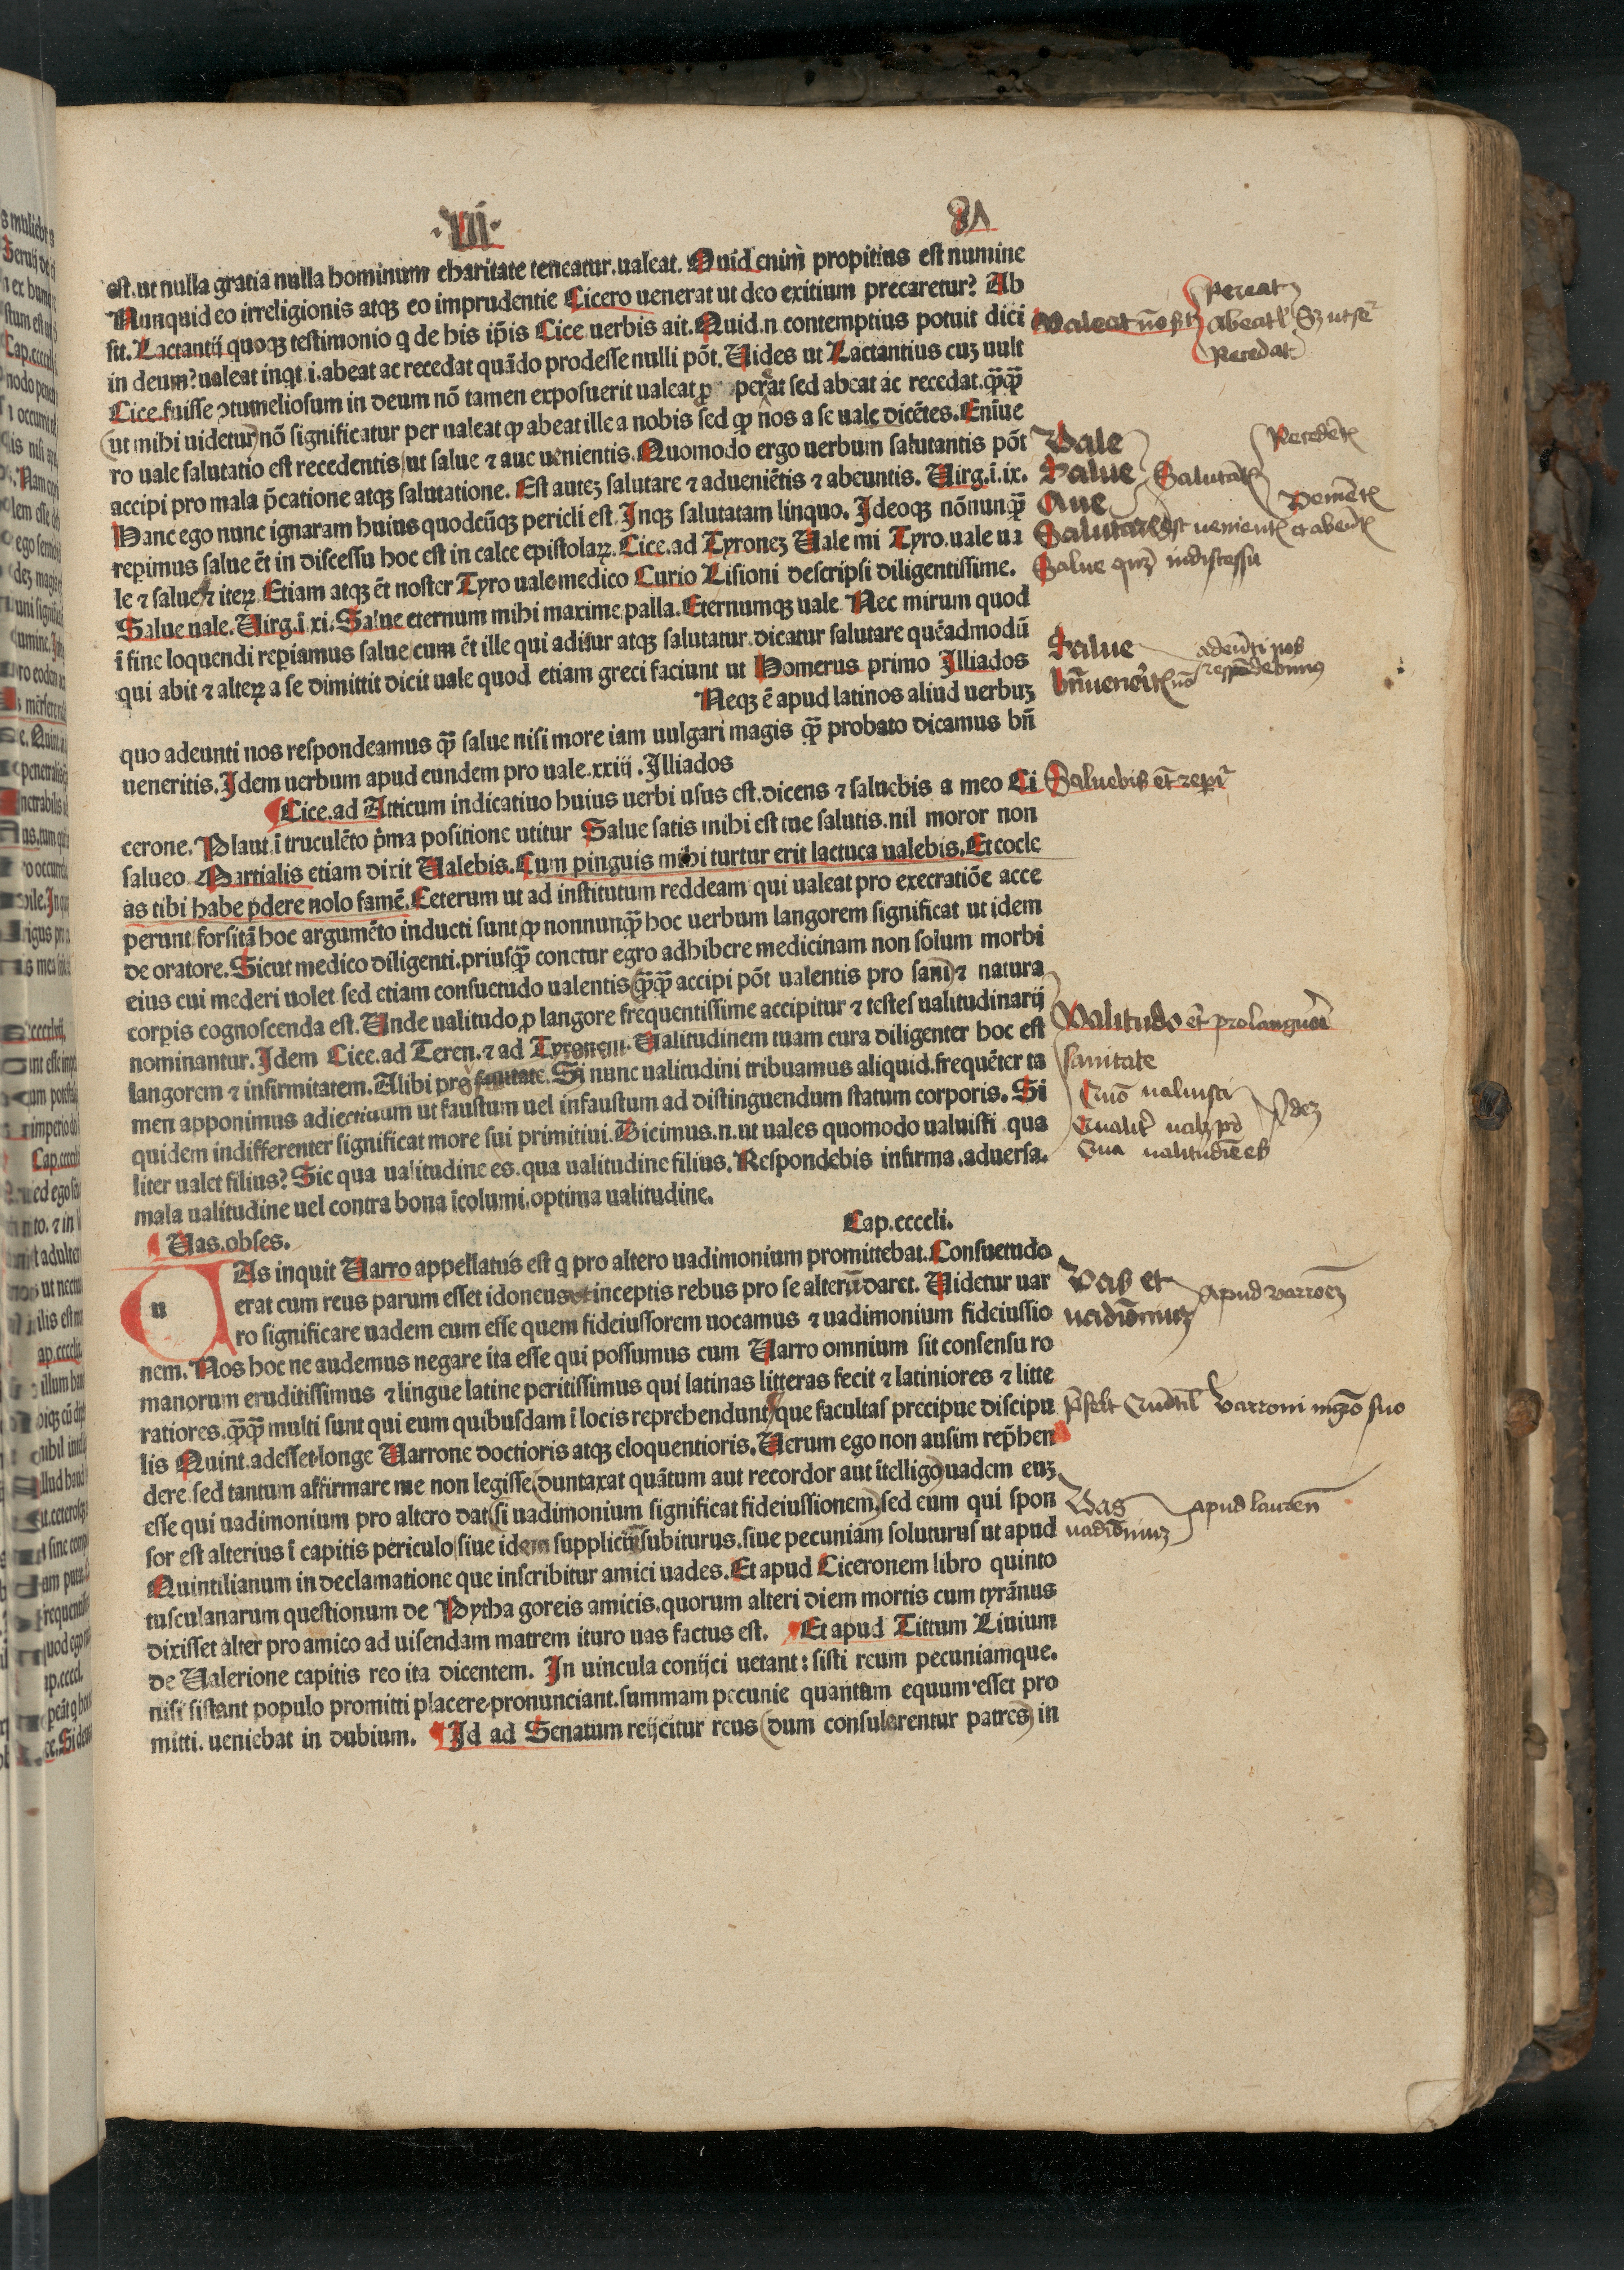 .VI.
81
est. ut nulla gratia nulla hominum charitate teneatur. ualeat. Quid enim propitius est numine
Nunquid eo irreligionis atqʒ eo imprudentie Cicero uenerat ut deo exitium precaretur? Ab
sit. Lactantij quoqʒ testimonio q de his ip̄is Cice uerbis ait. Quid.n. contemptius potuit dici
in deum? ualeat inqt .i. abeat ac recedat quādo prodesse nulli pōt. Uides ut Lactantius cuʒ uult
Cice. fuisse ↄtumeliosum in deum nō tamen exposuerit ualeat ꝓ perat sed abeat ac recedat. qꝫ̄qꝫ̄
(ut mihi uidetur) nō significatur per ualeat ꝙ abeat ille a nobis sed ꝙ nos a se uale dicētes. Enīue
ro uale salutatio est recedentis / ut salue ⁊ aue uenientis. Quomodo ergo uerbum salutantis pōt
accipi pro mala p̄catione atqʒ salutatione. Est auteʒ salutare ⁊ adueniētis ⁊ abeuntis. Uirg.ī.ix.
Hanc ego nunc ignaram huius quodcūqʒ pericli est. Inqʒ salutatam linquo. Ideoqʒ nōnunqꝫ̄
repimus salue ēt in discessu hoc est in calce epistolaꝝ. Cice. ad Tyroneʒ Uale mi Tyro. uale ua
le ⁊ salue. ⁊ iteꝝ. Etiam atqʒ ēt noster Tyro uale. medico Curio Lisioni descripsi diligentissime.
Salue uale. Uirg.ī xi. Salue eternum mihi maxime palla. Eternumqʒ uale Nec mirum quod
ī fine loquendi repiamus salue / cum ēt ille qui aditur atqʒ salutatur. dicatur salutare quēadmodū
qui abit ⁊ alteꝝ a se dimittit dicit uale quod etiam greci faciunt ut Homerus primo Illiados
Neqʒ ē apud latinos aliud uerbuʒ
quo adeunti nos respondeamus qꝫ̄ salue nisi more iam uulgari magis qꝫ̄ probato dicamus bn̄
ueneritis. Idem uerbum apud eundem pro uale. xxiij. Illiados
¶ Cice. ad Atticum indicatiuo huius uerbi usus est. dicens ⁊ saluebis a meo Ci
cerone. Plaut. ī truculēto p̄ma positione utitur Salue satis mihi est tue salutis. nil moror non
salueo. Martialis etiam dixit Ualebis. Cum pinguis mihi turtur erit lactuca ualebis. Et cocle
as tibi habe p̄dere nolo famē. Ceterum ut ad institutum reddeam qui ualeat pro execratiōe acce
perunt / forsitā hoc argumēto inducti sunt / ꝙ nonnunqꝫ̄ hoc uerbum langorem significat ut idem
de oratore. Sicut medico diligenti. priusqꝫ̄ conetur egro adhibere medicinam non solum morbi
eius cui mederi uolet sed etiam consuetudo ualentis (qꝫ̄qꝫ̄ accipi pōt ualentis pro sani) ⁊ natura
corpis cognoscenda est. Unde ualitudo ꝓ langore frequentissime accipitur ⁊ testes ualitudinarij
nominantur. Idem Cice. ad Teren. ⁊ ad Tyronem. Ualitudinem tuam cura diligenter hoc est
langorem ⁊ infirmitatem. Alibi pro sanitate. Si nunc ualitudini tribuamus aliquid. frequēter ta
men apponimus adiectiuum ut faustum uel infaustum ad distinguendum statum corporis. Si
quidem indifferenter significat more sui primitiui. Dicimus.n. ut uales quomodo ualuisti qua
liter ualet filius? Sic qua ualitudine es. qua ualitudine filius. Respondebis infirma. aduersa.
mala ualitudine uel contra bona īcolumi. optima ualitudine.
¶ Uas. obses.
Cap.ccccli.
u As inquit Uarro appellatus est q pro altero uadimonium promittebat. Consuetudo
erat cum reus parum esset idoneus inceptis rebus pro se alterū daret. Uidetur uar
ro significare uadem eum esse quem fideiussorem uocamus ⁊ uadimonium fideiussio
nem. Nos hoc ne audemus negare ita esse qui possumus cum Uarro omnium sit consensu ro
manorum eruditissimus ⁊ lingue latine peritissimus qui latinas litteras fecit ⁊ latiniores ⁊ litte
ratiores. qꝫ̄qꝫ̄ multi sunt qui eum quibusdam ī locis reprehendunt que facultas precipue discipu
lis Quint. adesset. longe Uarrone doctioris atqʒ eloquentioris. Uerum ego non ausim rep̄hen
dere sed tantum affirmare me non legisse (duntaxat quātum aut recordor aut ītelligo) uadem euʒ
esse qui uadimonium pro altero dat (si uadimonium significat fideiussionem) sed eum qui spon
sor est alterius ī capitis periculo / siue idem suppliciū subiturus. siue pecuniam soluturus ut apud
Quintilianum in declamatione que inscribitur amici uades. Et apud Ciceronem libro quinto
tusculanarum questionum de Pytha goreis amicis. quorum alteri diem mortis cum tyrānus
dixisset alter pro amico ad uisendam matrem ituro uas factus est. ¶ Et apud Tittum Liuium
de Ualerione capitis reo ita dicentem. In uincula conijci uetant: sisti reum pecuniamque.
nisi sistant populo promitti placere. pronunciant. summam pecunie quantam equum esset pro
mitti. ueniebat in dubium. ¶ Id ad Senatum reijcitur reus (dum consulerentur patres) in
Pereat
Valeat nō
Abeat
Recedat
Vale
Salue
Aue
Recedēt
Venīet
Salutare est uenient et abeūt
Salue in discessu
Salue
adeūti nos
respōdebimus
bn̄uenerit
Saluebis ēt
Valitudo et pro langore
sanitate
Quō ualuisti
Qua ualitudīe es
Vas et
uadimoniuʒ
apud varroeʒ
Varroni suo
Vas
uadimoniuʒ
apud lauren